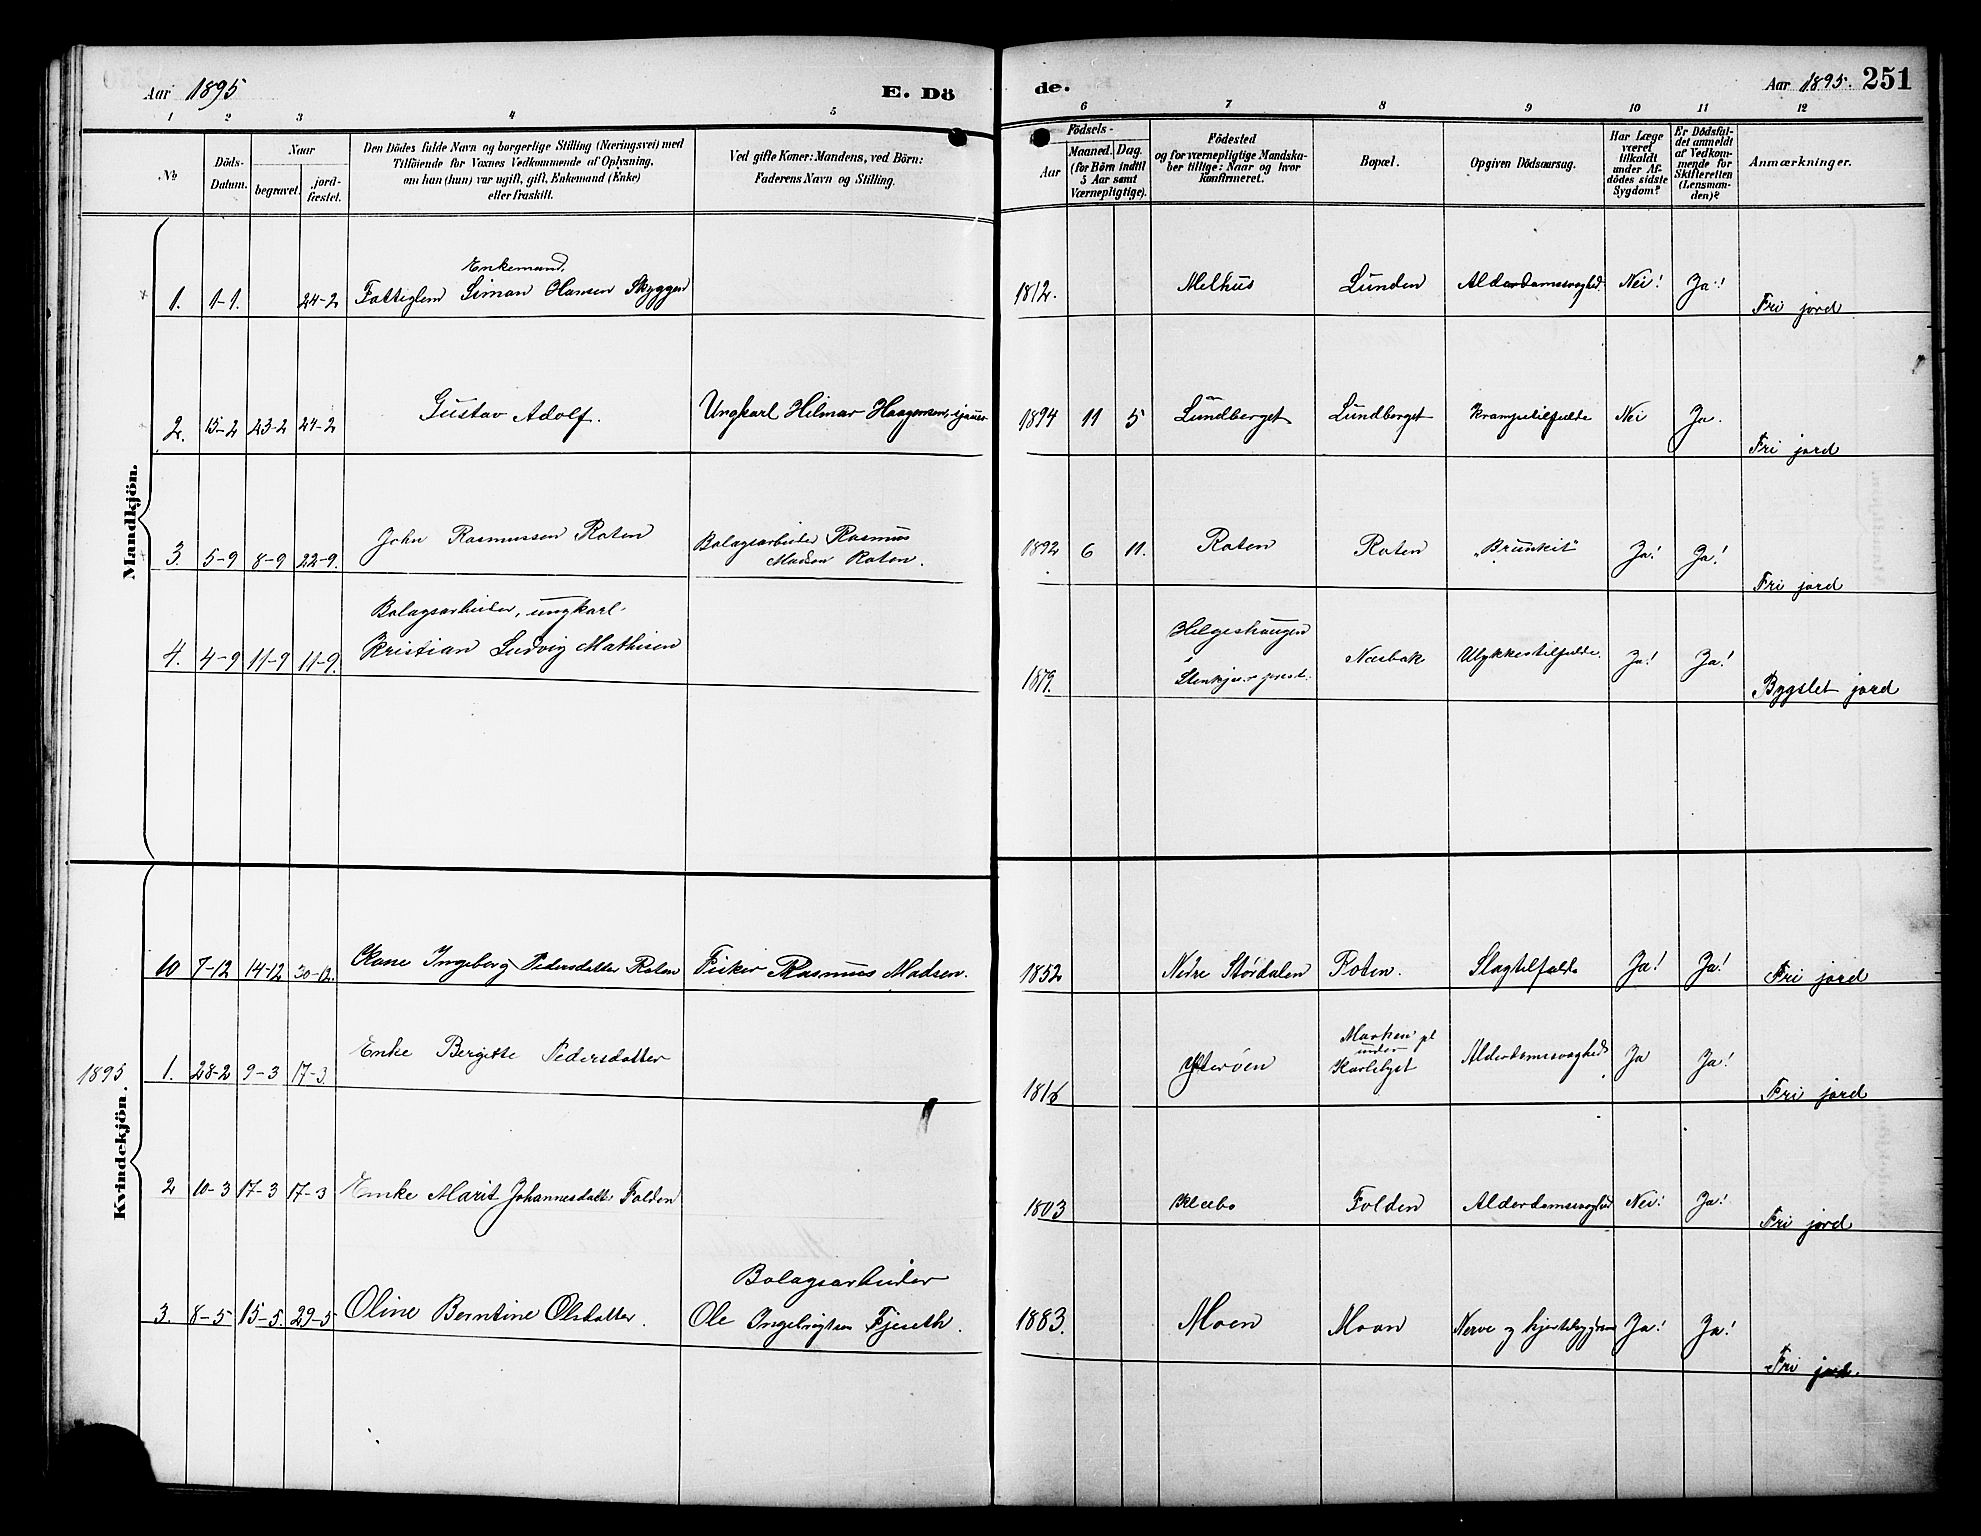 Aar 1895
E. Dö
de.
Aar 1895.
251
1 2 3 4 5 6 7 8 9 10 11 12
No
Döds-
Datum.
Naar
begravet.
jord-
fæstet.
Den Dödes fulde Navn og borgerlige Stilling (Næringsvei) med
Tilföiende for Voxnes Vedkommende af Oplysning,
om han (hun) var ugift, gift, Enkemand (Enke)
eller fraskilt.
Ved gifte Koner: Mandens, ved Börn:
Faderens Navn og Stilling.
Födsels-
Aar
Maaned. Dag.
(for Börn indtil
5 Aar samt
Værnepligtige).
Födested
og for værnepligtige Mandska-
ber tillige: Naar og hvor
konfirmeret.
Bopæl.
Opgiven Dödsaarsag.
Har Læge
været
tilkaldt
under Af-
dödes sidste
Sygdom?
Er Dödsfal-
det anmeldt
af Vedkom-
mende for
Skifteretten
(Lensman-
den)?
Anmærkninger.
Mandkjön.
Enkemand
1. 1-1. 24-2 Fattiglem Simon Hansen Skyggen 1812. Melhus Lunden Alderdomssvaghed. Nei! Ja! Fri jord
2. 15-2 23-2 24-2 Gustav Adolf. Ungkarl Hilmar Haagensen, sjauer 1894 11 5 Lundberget Lundberget Krampetilfælde Nei Ja. Fri jord
3. 5-9 8-9 22-9. John Rasmussen Roten Bolagsarbeider Rasmus
Madsen Roten. 1892 6 11. Roten Roten "Brunkit" Ja! Ja! Fri jord
Bolagsarbeider, ungkarl
4. 4-9 11-9 11-9. Kristian Ludvig Mathisen 1879. Helgeshaugen
Stenkjær prest. Næsbak Ulykkestilfælde. Ja! Ja! Bygslet jord
Kvindekjön.
10 7-12 14-12 30-12. Kone Ingeborg Pedersdatter Roten Fisker Rasmus Madsen. 1852 Nedre Størdalen Roten. Slagtilfælde Ja! Ja! Fri jord
1895. 1. 28-2 9-3 17-3. Enke Bergitte Pedersdatter 1816 Ytterøen Marken pl
under
Karlslyst Alderdomssvaghed Ja Ja! Fri jord
2 10-3 17-3 17-3 Enke Marit Johannesdatt. Folden 1803 Klæbo Folden Alderdomssvaghed Nei! Ja! Fri jord
Bolagsarbeider
3. 8-5 15-5. 29-5 Oline Berntine Olsdatter. Ole Ingebrigtsen Fjeseth. 1883. Moen Moan Nerve og Ja! Ja! Fri jord.